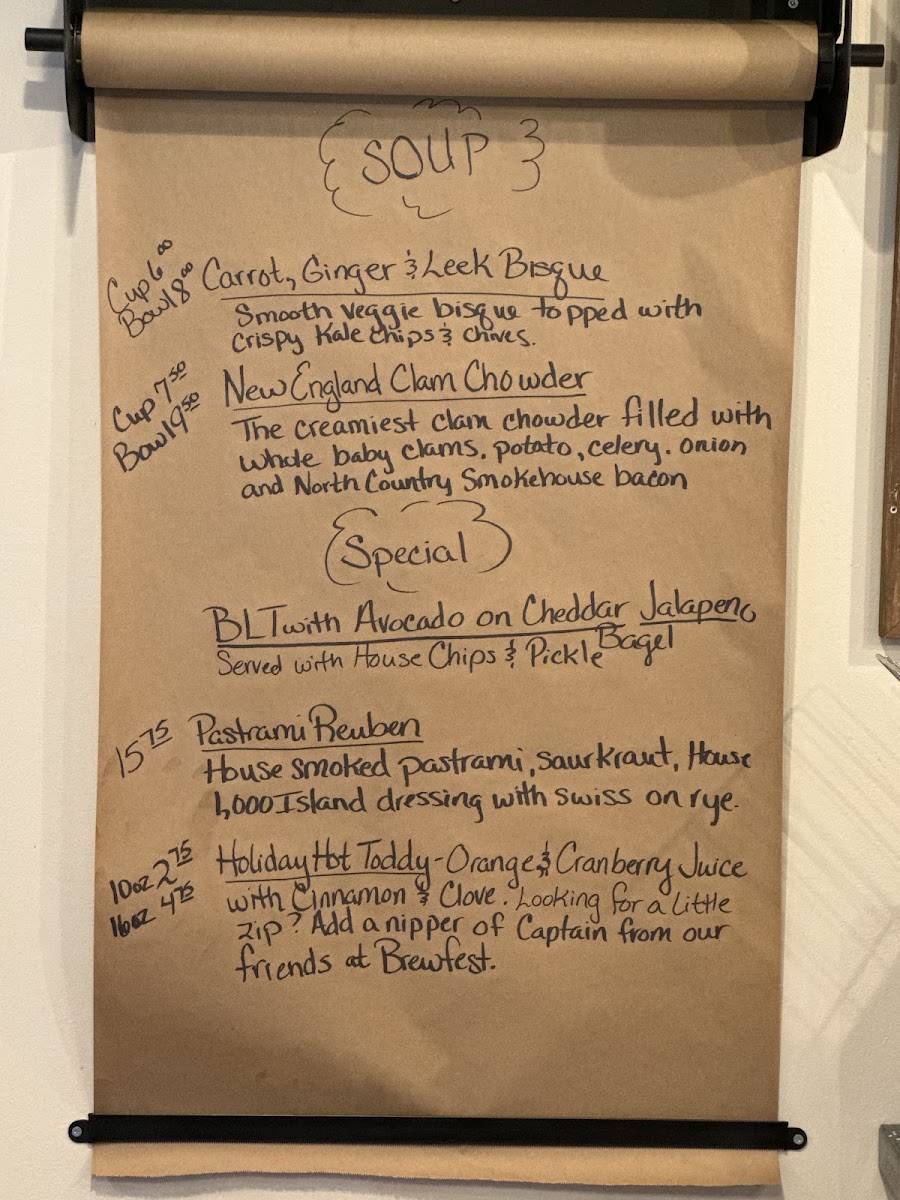 SOUP
Cup 6.00 Carrot, Ginger & Leek Bisque
Bowl 8.00
Smooth veggie bisque topped with
crispy Kale chips & chives.
Cup 7.50 New England Clam Chowder
Bowl 9.50
The creamiest clam chowder filled with
whole baby clams, potato, celery. onion
and North Country Smokehouse bacon
Special
BLT with Avocado on Cheddar Jalapeno
Bagel
Served with House Chips & Pickle
15.75 Pastrami Reuben
House smoked pastrami, saurkraut, House
1,000 Island dressing with swiss on rye.
10oz 2.75 Holiday Hot Toddy - Orange & Cranberry Juice
16oz 4.75 with Cinnamon & Clove. Looking for a little
zip? Add a nipper of Captain from our
friends at Brewfest.